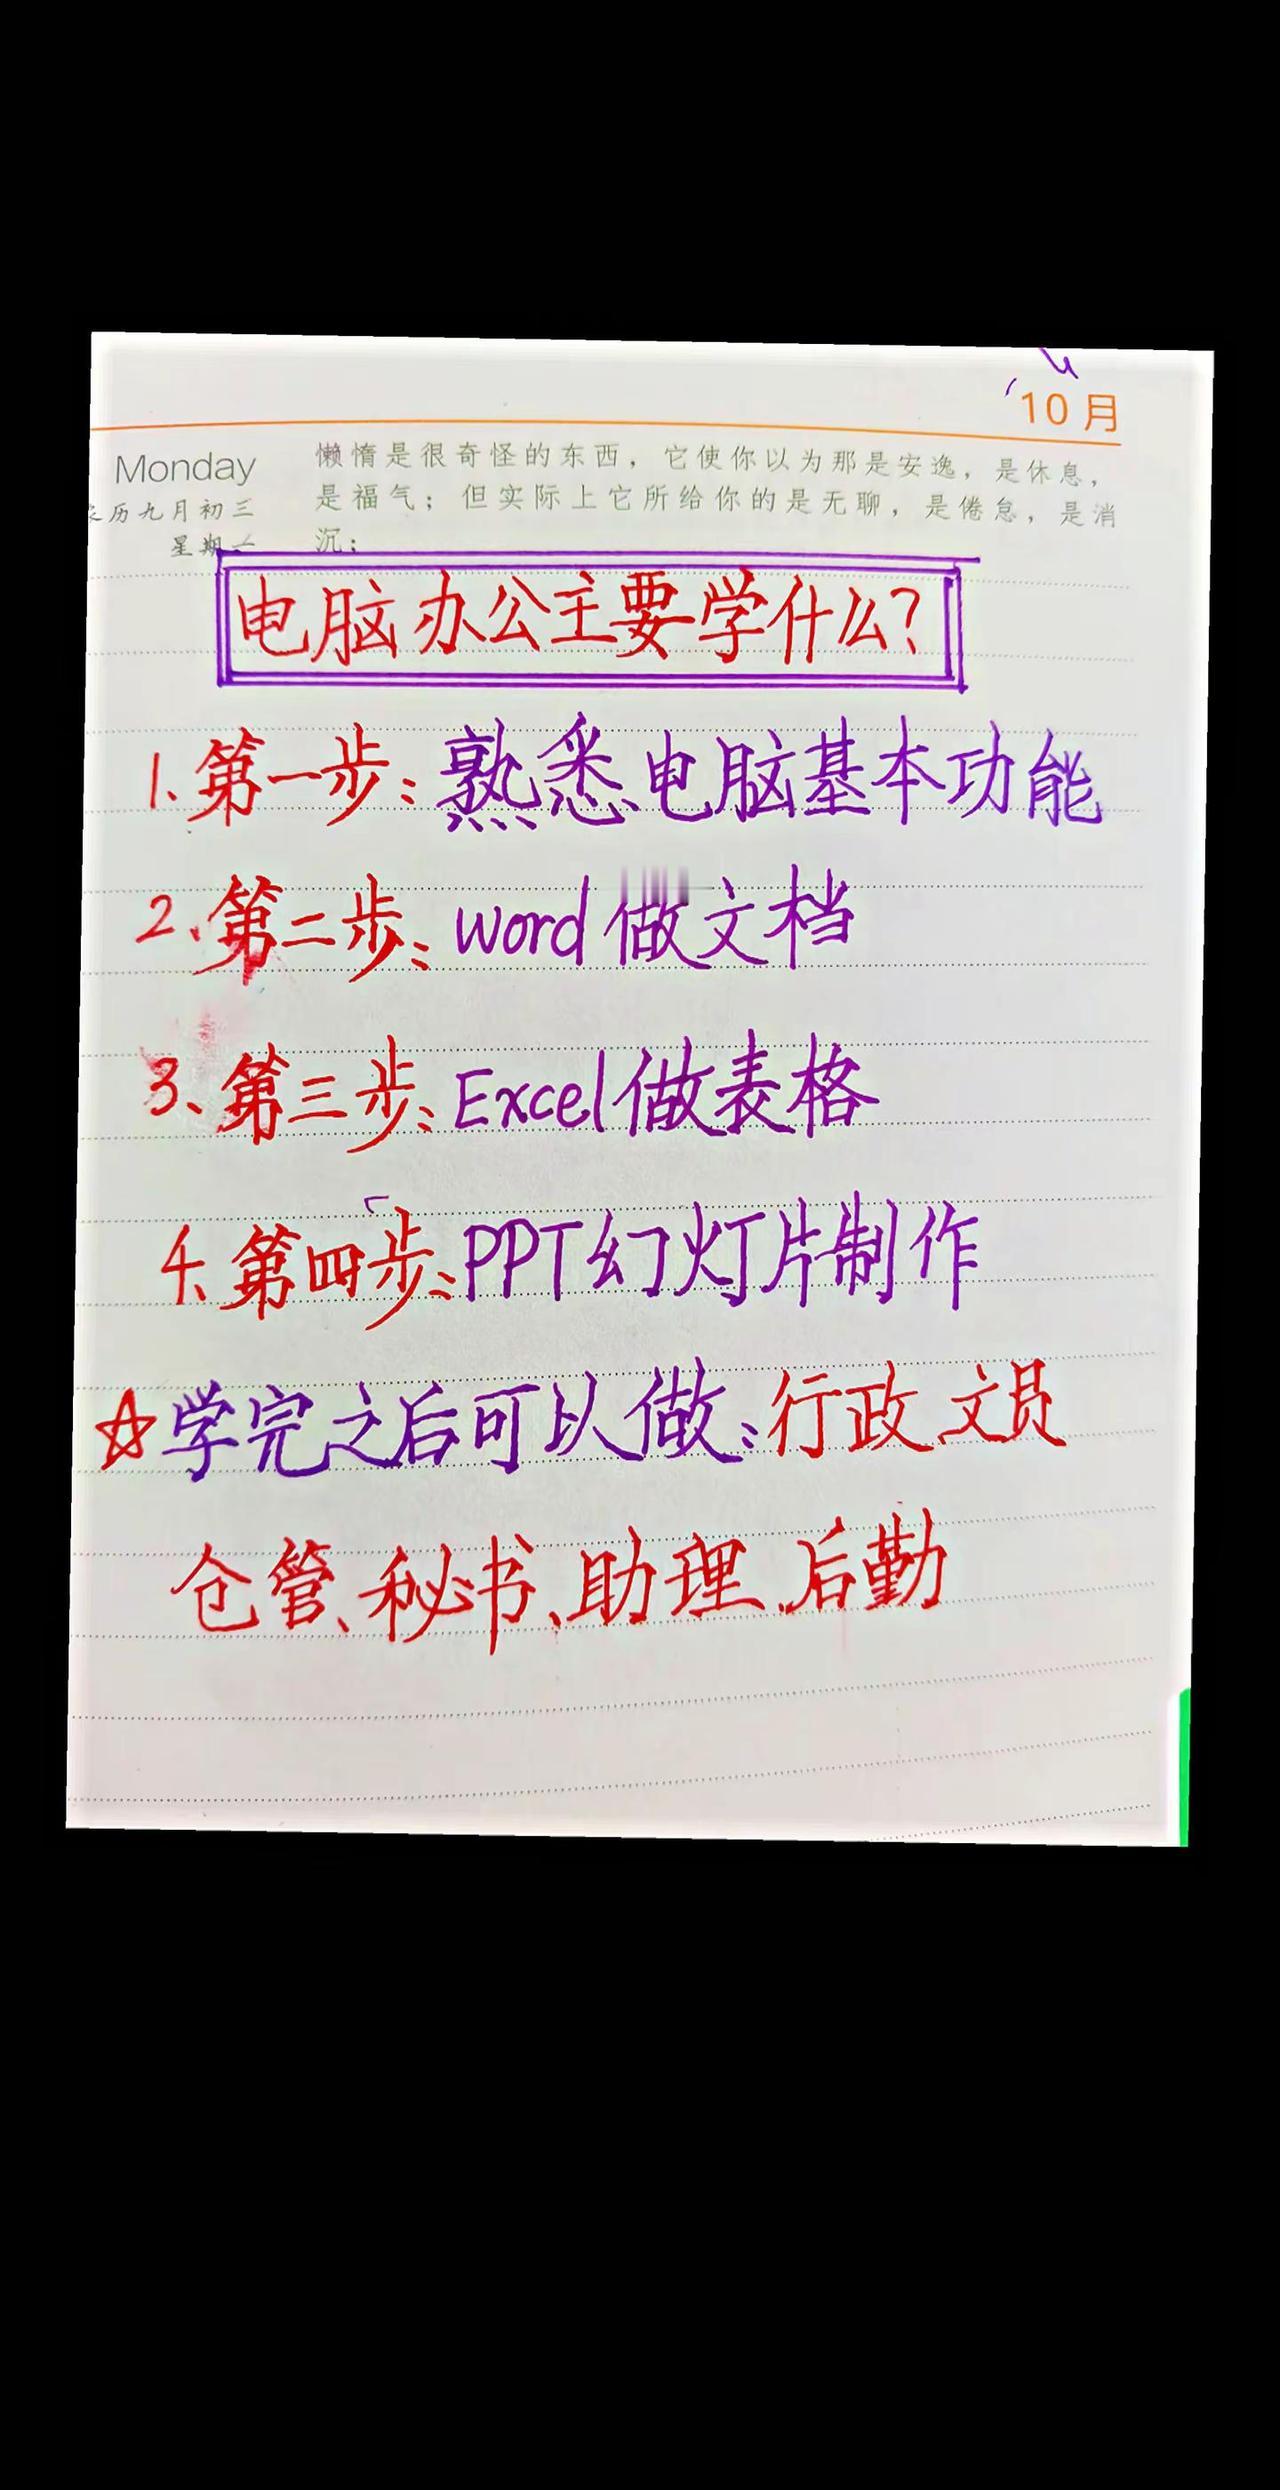 10月
Monday 懒惰是很奇怪的东西，它使你以为那是安逸，是休息，
历九月初三 是福气；但实际上它所给你的是无聊，是倦怠，是消
星期一 沉；
电脑办公主要学什么？
1、第一步：熟悉电脑基本功能
2、第二步：word做文档
3、第三步：Excel做表格
4、第四步：PPT幻灯片制作
☆学完之后可以做：行政、文员
仓管、秘书、助理、后勤